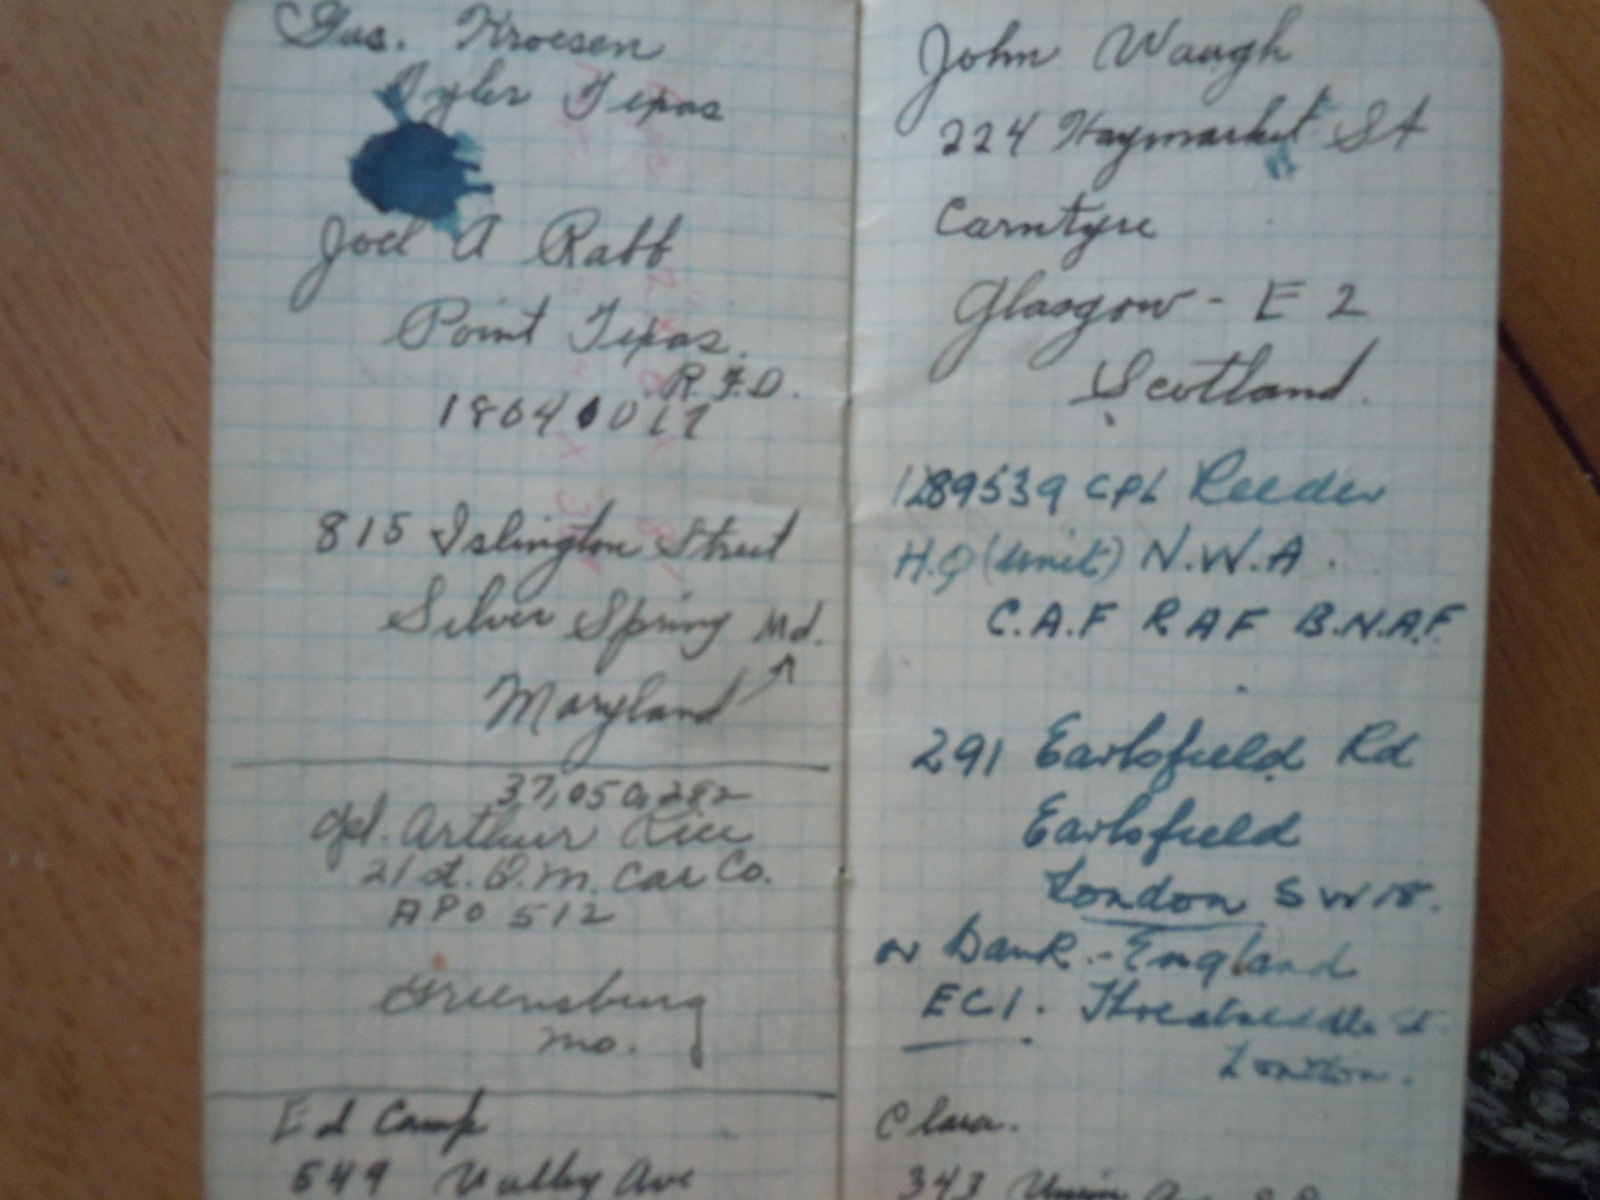 Gus. Kroesen
Tyler Texas
Joel A Rabb
Point Texas.
R.F.D.
815 Islington Street
Silver Spring Md.
Maryland
37,050,282
Cpl. Arthur Rice
21st. Q.M. Car Co.
APO 512
Greensburg
Mo.
Ed Camp
549 Valley Ave
John Waugh
224 Haymarket St
Carntyne
Glasgow - E 2
Scotland.
1289539 CPL Reeder
H.Q (Unit) N.W.A.
C.A.F RAF B.N.A.F.
291 Earlsfield Rd
Earlsfield
London SW18.
or Bank.-England
EC1. Threadneedle St.
London.
Clara.
343 Union